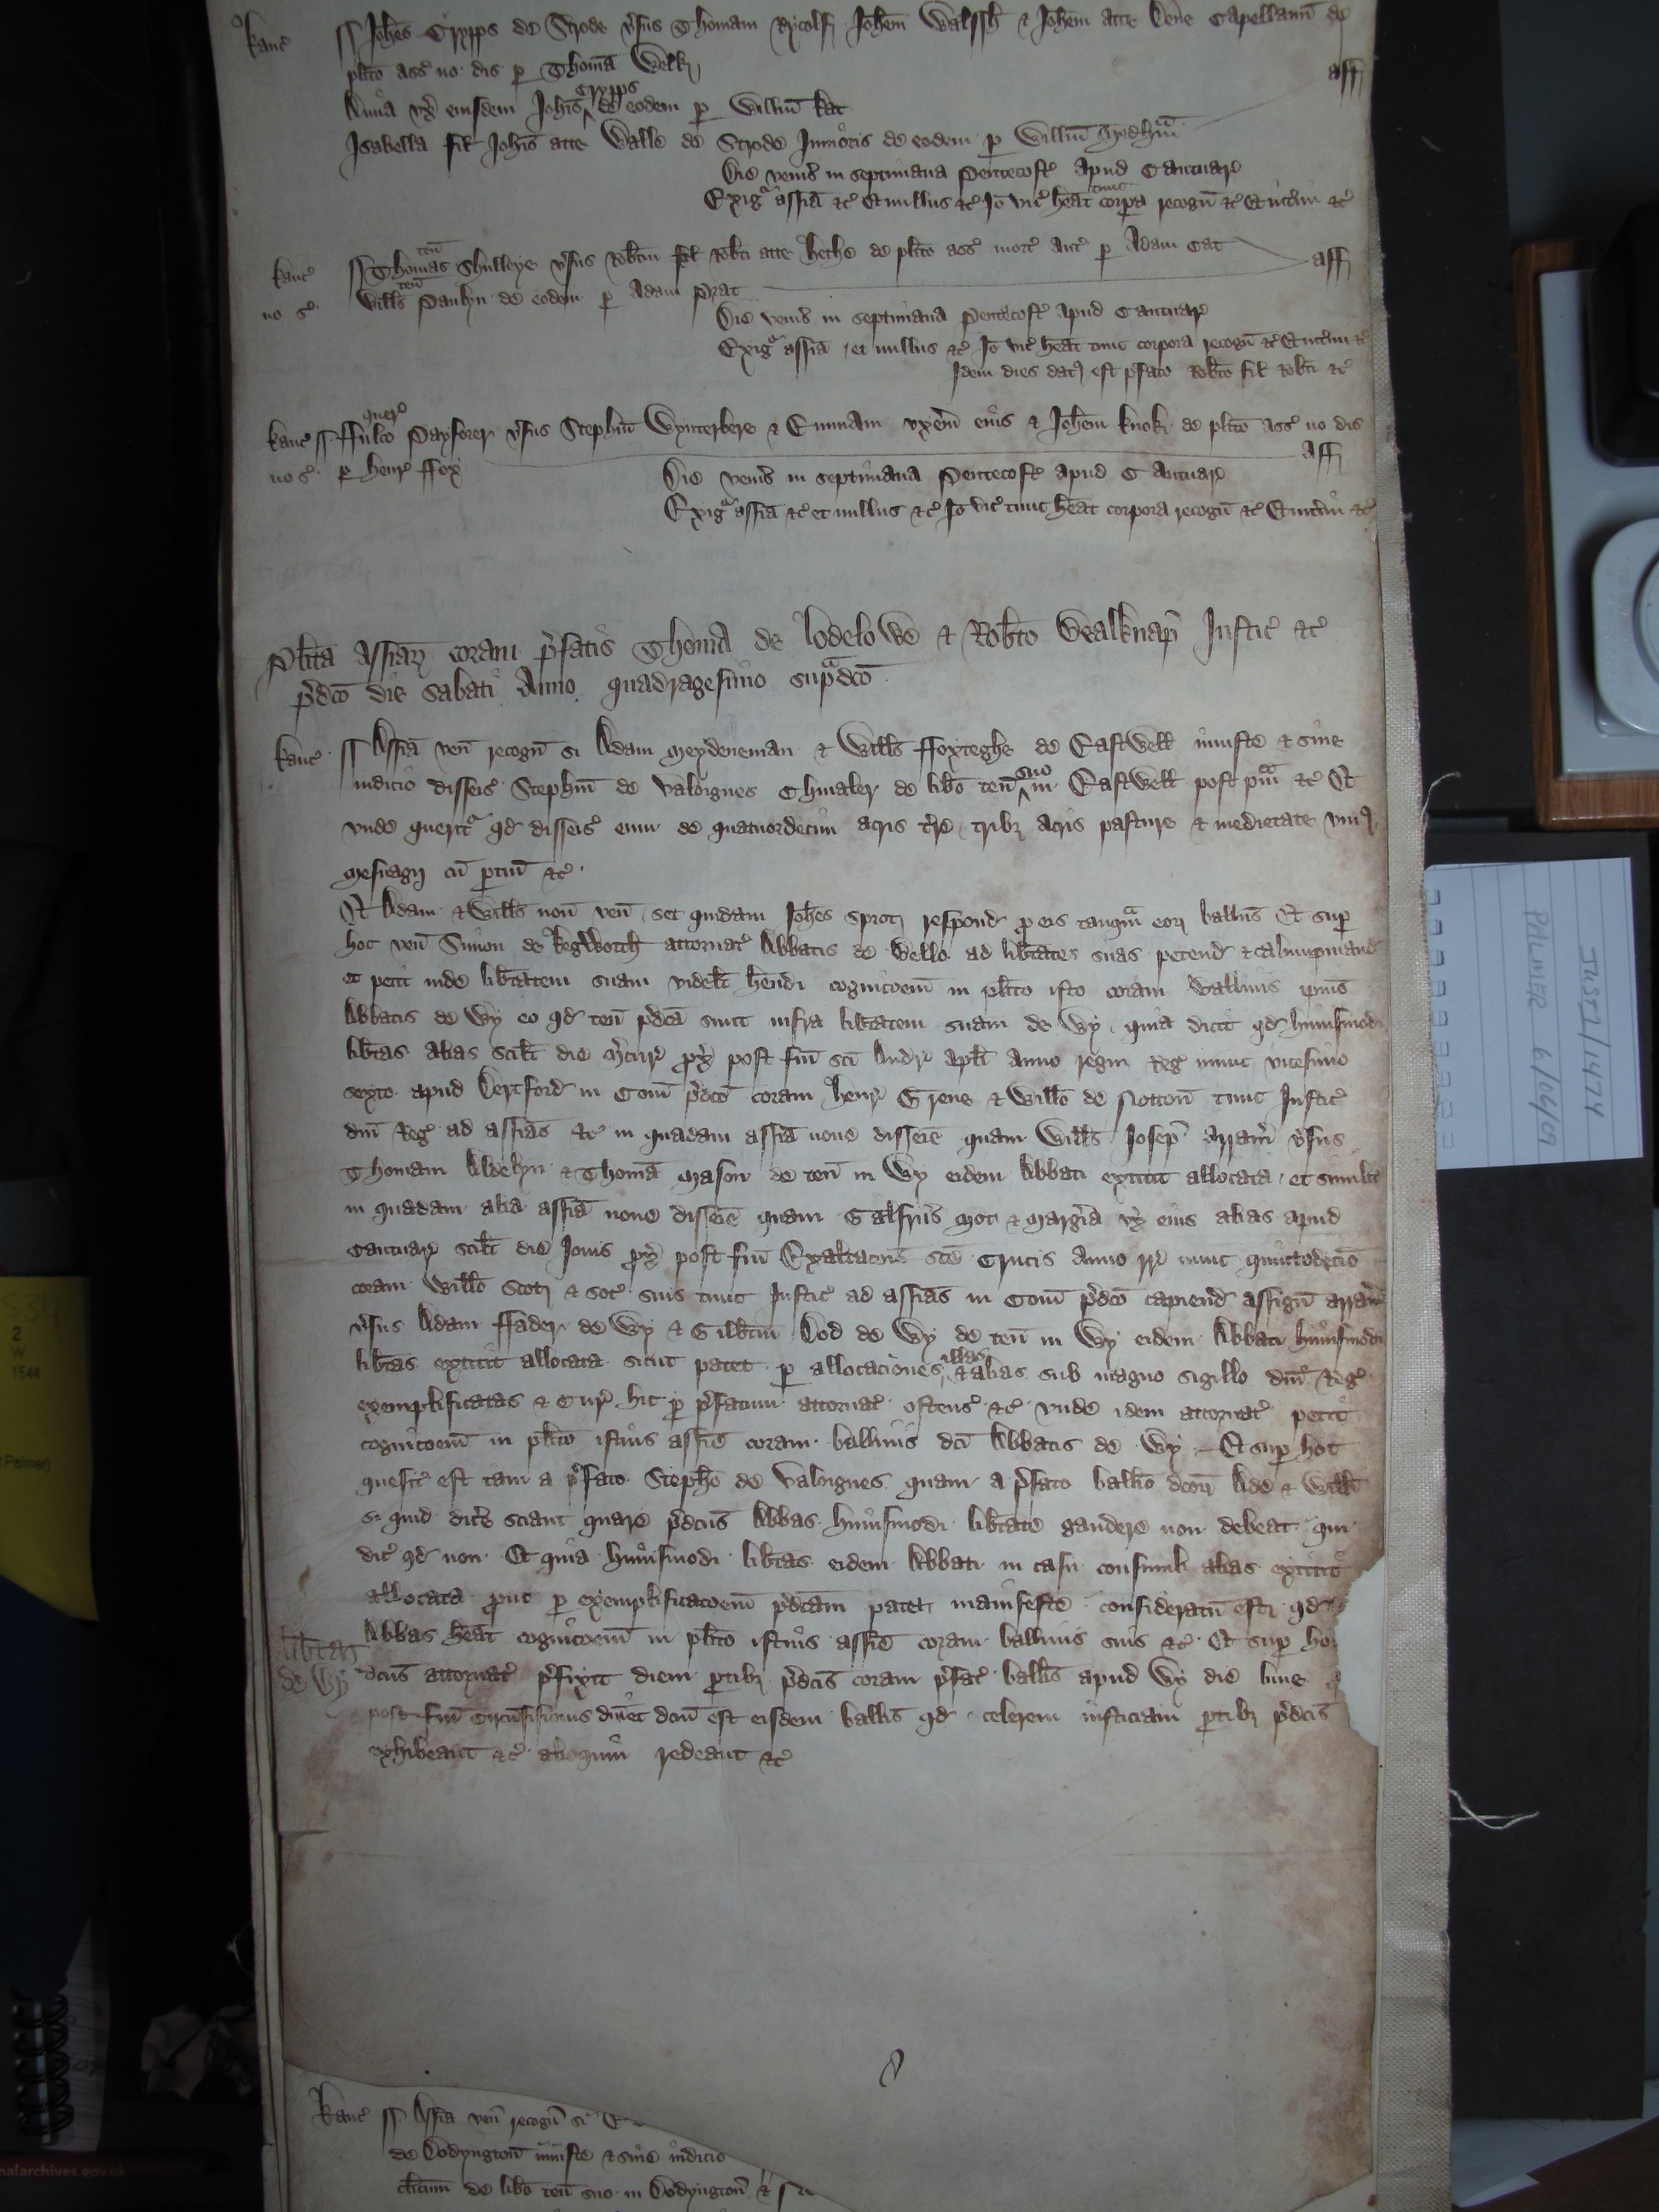 Kanc̃ Joh̃es Crypps de Strode v̾sus Thomam Rycolf Joh̃em Walssh̃ & Joh̃em atte Dene Capellanũ de
pl̃ito ass̾ no dis p̱ Thomã Welk aff̃
Anña ux̃ eiusdem Joh̃is Crypps de eodem p̱ Will̃m kat
Isabella fil̃ Joh̃is atte Walle de Strode Junioris de eodem p̱ Will̃m
Die ven̾is in septimana Pentecost̾ apud Cantuar̾
Exigᵃ assĩa &c̾ Et nullus &c̾ Jõ vic̾ h̃eat tunc corpora recogñ &c̾ Et int̾im &c̾
Kanc̃ Thomas ten̾ Shulleye v̾sus Rob̃tm fil̃ Rob̃ti atte hethe de pl̃ito ass̾ mort̾ anc̾ p̱ Adam Cat aff̃
no s̾ Will̃s ten̾ Paulyn de eodem p̱ Adam Prat
Die ven̾is in septimana Pentecost̾ apud Cantuar̾
Exigᵃ assĩa et nullus &c̾ Jõ vic̾ h̃eat tunc corpora recogñ &c̾ Et int̾im &c̾
Idem dies datꝰ est p̾fato Rob̃to fil̃ Rob̃ti &c̾
Kanc̃ ffulco quer̾ Payforer v̾sus Steph̃m Wynterbere & Emmam ux̾em eius & Joh̃em knok de pl̃ito ass̾ no dis
no s̾ p̱ henr̾ ffox aff̃
Die ven̾is in septimana Pentecost̾ apud Cantuar̾
Exigᵃ assĩa &c̾ et nullus &c̾ Jõ vic̾ tunc h̃eat corpora recogñ &c̾ Et int̾im &c̾
Pl̃ita assiaꝝ coram p̾fatis Thoma de lodelowe & Rob̃to Bealknap̾ Justic̾ &c̾
p̾dc̃o die sabati Anno quadragesimo sup̱ᵃdc̃o
Kanc̃ Assĩa veñ recogñ si Adam Meydeneman & Will̃s ffoxteghe de Eastwell iniuste & sine
iudicio disseis̾ Steph̃m de Valoignes Chiualer de lib̃o teñ suo in Eastwell post pᵃm &c̾ Et
vnde queritᵃ qd̾ disseis̾ eum de quatuordecim acris t̾re tribꝫ acris pasture & medietate vniꝰ
mesuagij cũ p̱tiñ &c̾
Et Adam & Will̃s non veñ set quidam Joh̃es Sprot respond̾ p̱ eis tanqᵃm eoꝝ balliũs Et sup̱
hoc veñ Simon de kegworth attornat̾ Abbatis de Bello ad lib̃tates suas petend̾ & calumpniand̾
et petit inde lib̃tatem suam videl̃t h̃endi cognic̃oem in pl̃ito isto coram Balliuis ip̃ius
Abbatis de Wy eo qd̾ teñ p̾dc̃a sunt infra lib̃tatem suam de Wy quia dicit qd̾ hui̾smodi
lib̃tas alias scil̃t die m̾cur̾ px̾ post fm̃ sc̃i Andr̾ apl̃i Anno regni Reg̾ nunc vicesimo
sexto apud Dertford in Com̃ p̾dc̃o coram henr̾ Grene & Will̃o de Notton̾ tunc Justic̾
dñi Reg̾ ad ass̃ias &c̾ in quadam ass̃ia noue disseĩe quam Will̃s Josep̾ arram̾ v̾sus
Thomam Aldelyn & Thomã Mason de teñ in Wy eidem Abbati extitit allocata et simil̃r
in quadam alia ass̃ia noue disseĩe quam Galfrũs Mot & Marg̾ia vx̾ eius alias apud
Cantuar̾ scil̃t die Jouis px̾ post fm̃ Exaltac̃oñis sc̃e Crucis Anno r̾r̾ nunc quintodecĩo
coram Will̃o Scot & soc̾ suis tunc Justic̾ ad ass̃ias in Com̃ p̾dc̃o capiend̾ assigñ arram̾
v̾sus Adam ffader de Wy & Gilb̃tm Dod de Wy de teñ in Wy eidem Abbati hui̾smodi
lib̃tas extitit allocata sicut patet p̱ allocaciones illas & alias sub magno sigillo dñi Reg̾
exemplificatas & Cur̾ hic p̱ p̾fatum attornat̾ ostens̾ &c̾ vnde idem attornat̾ petit
cognic̃oem in pl̃ito istius ass̃ie coram balliuis dc̃i Abbatis de Wy Et sup̱ hoc
quesit̾ est tam a p̾fato Steph̃o de Valoignes quam a p̾fato ball̃io dc̃oꝝ Ade & Will̃i
si quid dic̾e sciant quare p̾dc̃us Abbas hui̾smodi lib̃tate gaudere non debeat qui
dic̾ qd̾ non Et quia hui̾smodi lib̃tas eidem Abbati in casu consimili alias extitit
allocata prout p̱ exemplificac̃oem p̾dc̃am patet manifeste consideratũ est qd̾
Abbas h̃eat cognic̃oem in pl̃ito istius ass̃ie coram balliuis suis &c̾ Et sup̱ ho
lib̃tas de Wy dc̃us attornat̾ p̾fixit diem p̱tibꝫ p̾dc̃is coram p̾fat̾ ball̃is apud Wy die lune
post fm̃ Circũsisionis dñi et dc̃m est eisdem ball̃is qd̾ celerem iusticiam p̱tibꝫ p̾dc̃is
exhibeant &c̾ alioquin redeant &c̾
8
Kanc̃ Assĩa veñ recogñ si
de Dodyngton̾ iniuste & sine iudicio
cl̃icum de lib̃o teñ suo in Dodyngton̾ &
JUST 1/1474
PALMER 6/04/09
2
W
1544
Palmer)
nalarchives.gov.uk